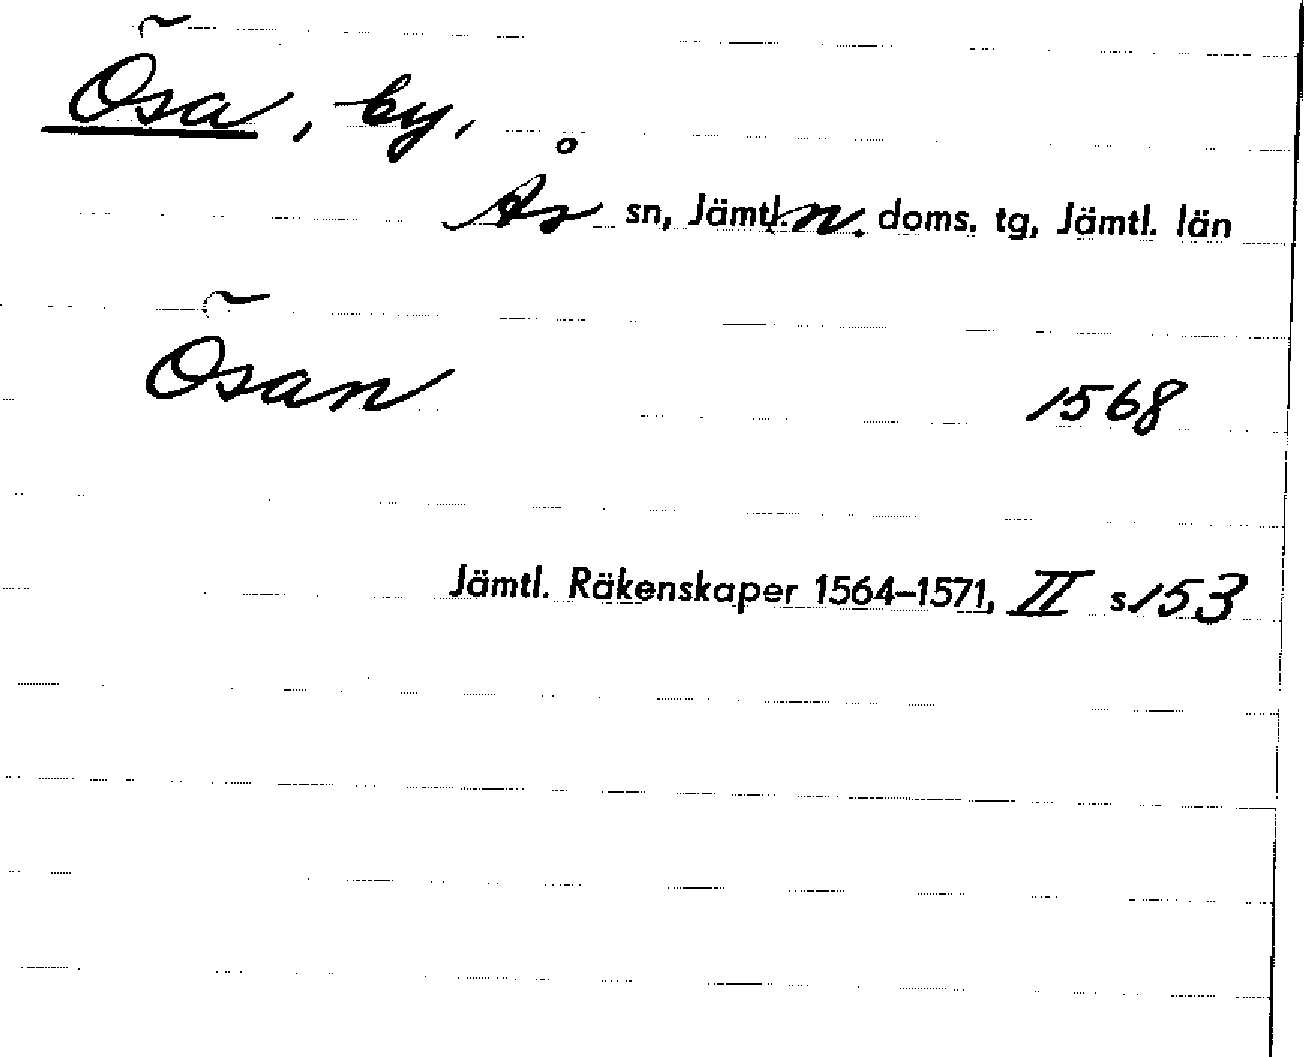 Ösa, by,
Ås sn, Jämtl. n. doms. tg, Jämtl. län
Ösan 1568
Jämtl. Räkenskaper 1564–1571, II s 153